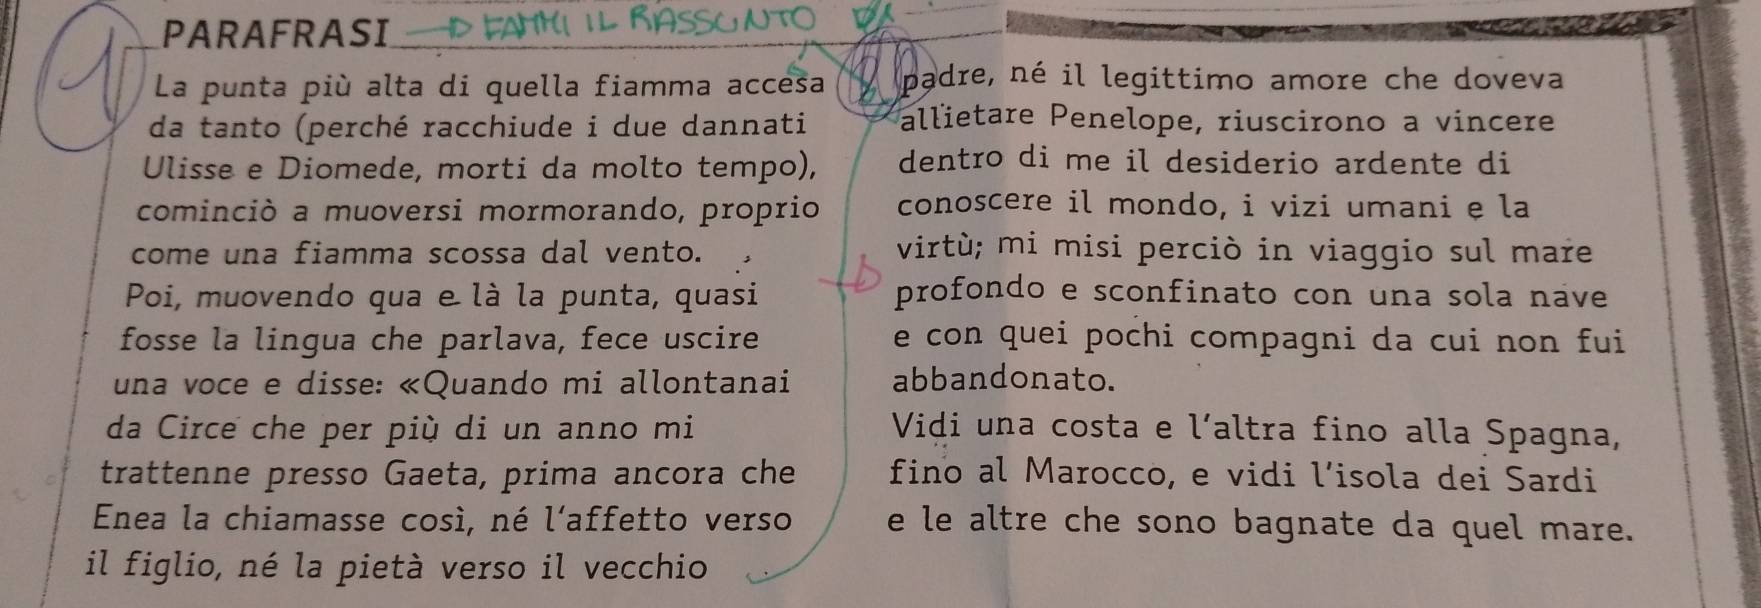 PARAFRASI → FAMMI IL RASSUNTO DA
1
La punta più alta di quella fiamma accesa
da tanto (perché racchiude i due dannati
Ulisse e Diomede, morti da molto tempo),
cominciò a muoversi mormorando, proprio
come una fiamma scossa dal vento.
Poi, muovendo qua e là la punta, quasi
fosse la lingua che parlava, fece uscire
una voce e disse: «Quando mi allontanai
da Circe che per più di un anno mi
trattenne presso Gaeta, prima ancora che
Enea la chiamasse così, né l'affetto verso
il figlio, né la pietà verso il vecchio
padre, né il legittimo amore che doveva
allietare Penelope, riuscirono a vincere
dentro di me il desiderio ardente di
conoscere il mondo, i vizi umani e la
virtù; mi misi perciò in viaggio sul mare
profondo e sconfinato con una sola nave
e con quei pochi compagni da cui non fui
abbandonato.
Vidi una costa e l'altra fino alla Spagna,
fino al Marocco, e vidi l'isola dei Sardi
e le altre che sono bagnate da quel mare.